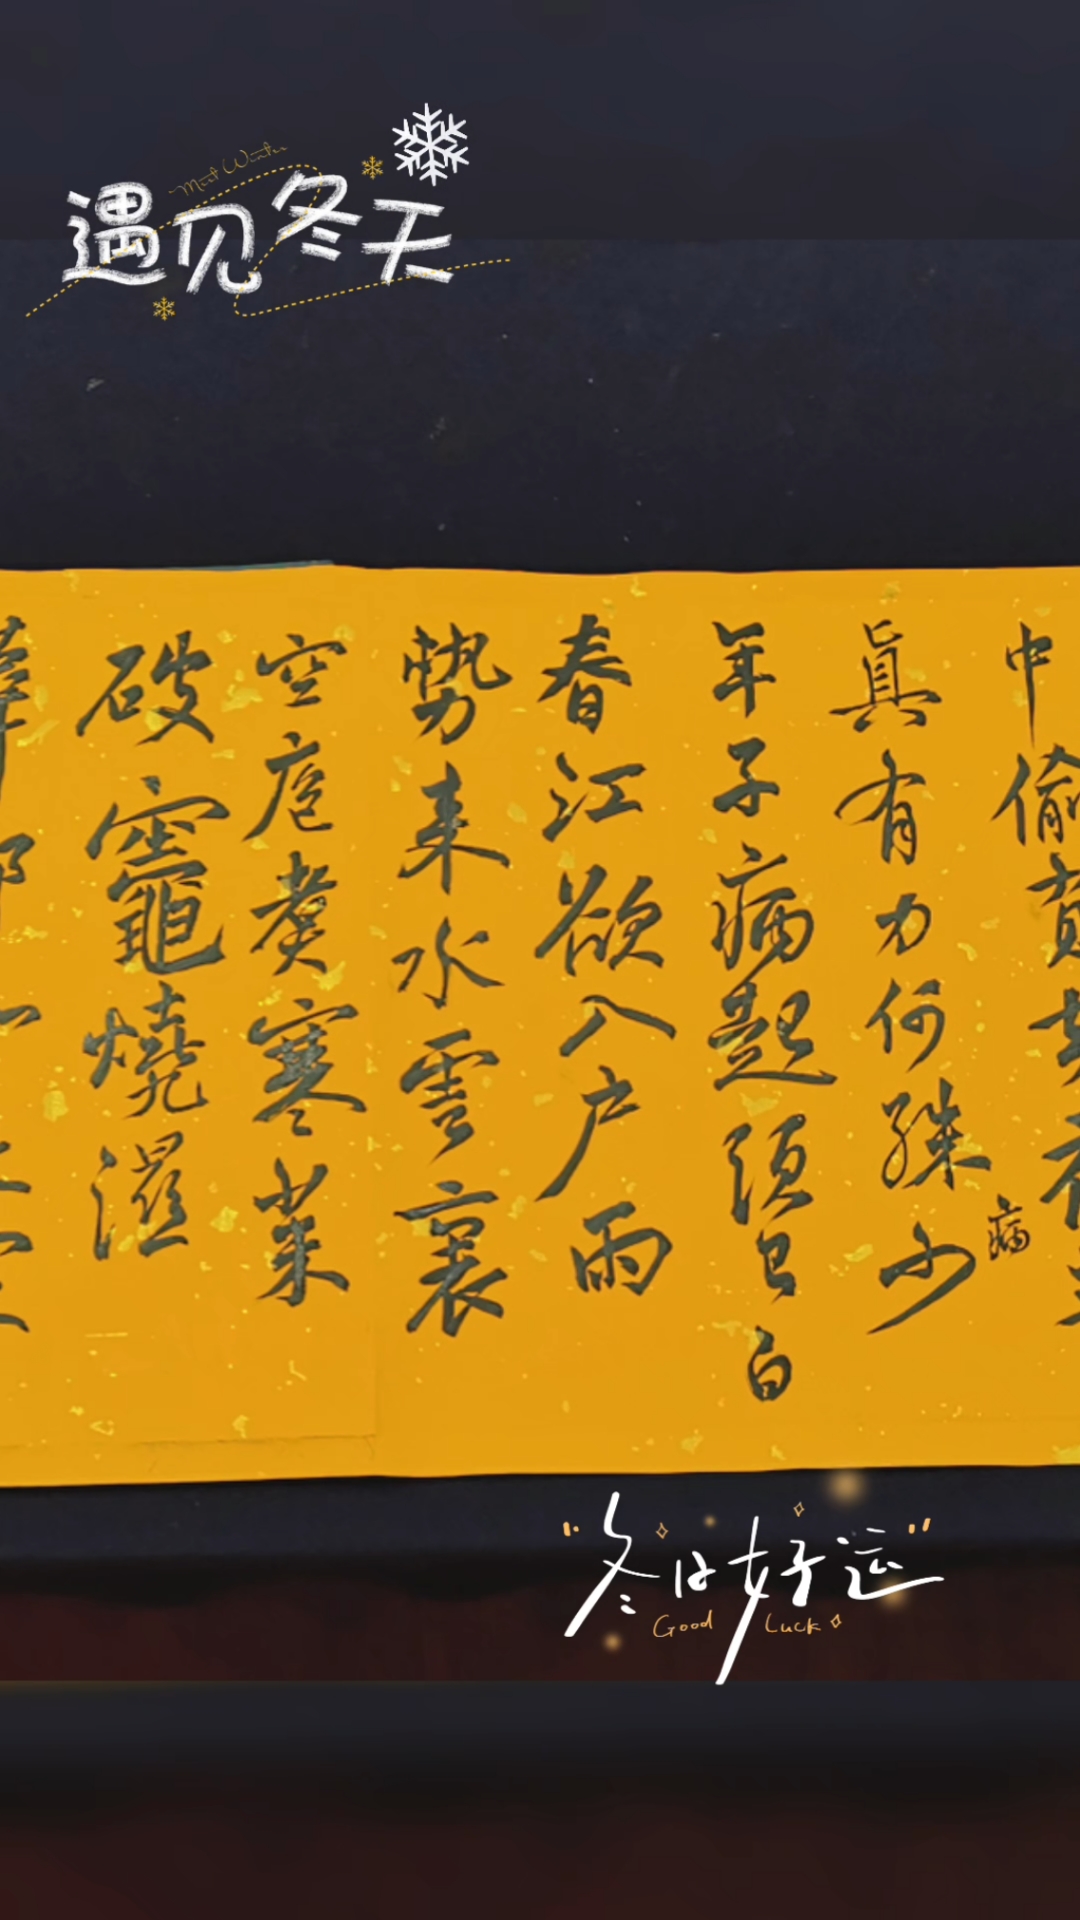 Meet Winter
遇见冬天
中偷負
眞有力何殊少
病
年子病起須已白
春江欲入户雨
勢来水雲裏
空庖煑寒菜
破竈燒濕
冬日好运
Good Luck